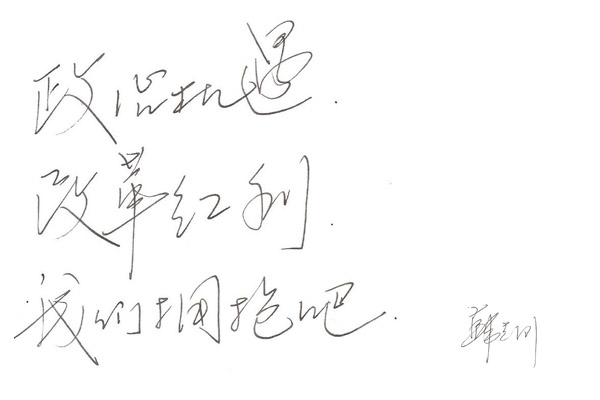 政治机遇.
改革红利.
我们拥抱吧.